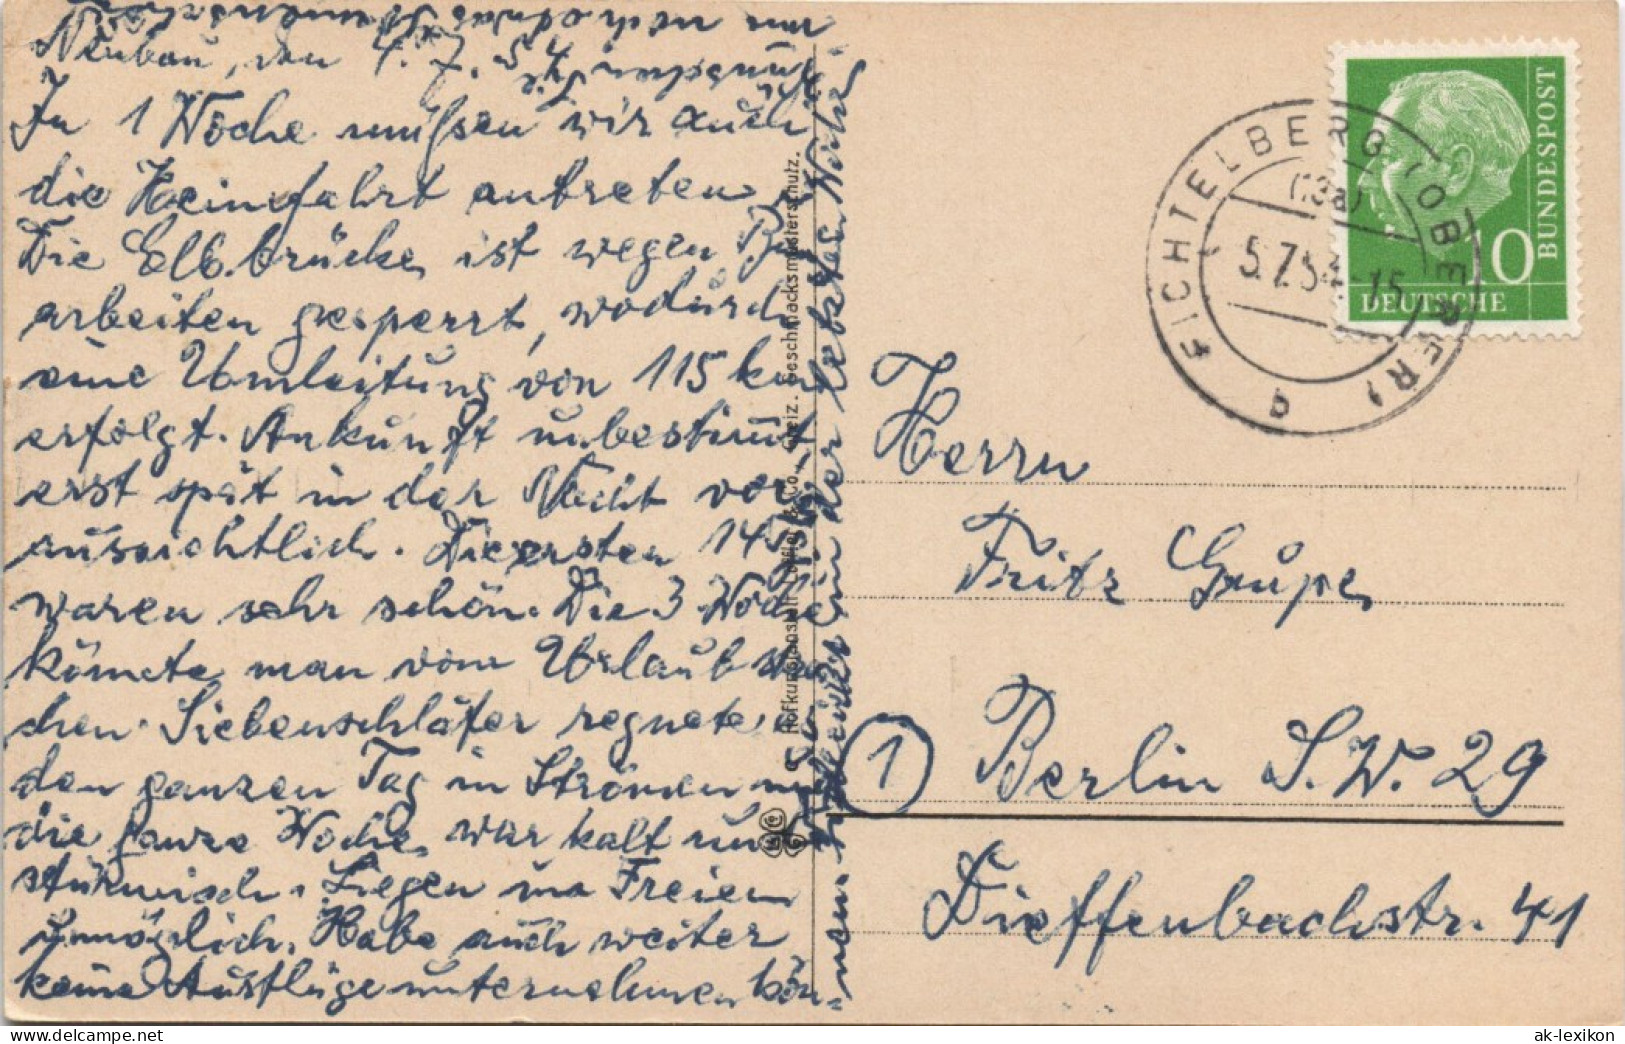 Neubau, den 4. 7. 54.
In 1 Woche müssen wir auch
die Heimfahrt antreten.
Die Elbbrücke ist wegen Bau
arbeiten gesperrt, wodurch
eine Umleitung von 115 km
erfolgt. Ankunft unbestimmt
erst spät in der Nacht vor
aussichtlich. Die ersten 14
waren sehr schön. Die 3. Woche
könnte man vom Urlaub strei
chen. Siebenschläfer regnete
den ganzen Tag in Strömen und
die ganze Woche war kalt und
stürmisch. Liegen im Freien
unmöglich. Habe auch weiter
keine Ausflüge unternehmen kön-
nen.
in der letzten Woche
noch etwas
Hofkunstanstalt Löffler & Co., Greiz. Geschmacksmusterschutz.
FICHTELBERG (OBERFR)
(13a)
5.7.54.-15
DEUTSCHE
BUNDESPOST
10
Herrn
Fritz Grupe
1 Berlin S.W. 29
Dieffenbachstr. 41
ak-lexikon